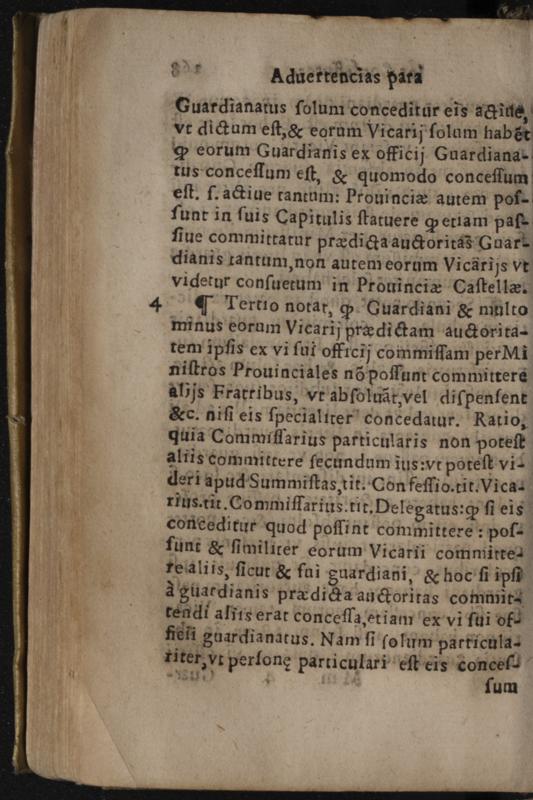 Aduertencias para
Guardianatus ſolum conceditur eis actiue,
vt dictum eſt,& eorum Vicarij ſolum habẽt
ꝙ eorum Guardianis ex officij Guardiana-
tus conceſſum eſt, & quomodo conceſſum
eſt. ſ. actiue tantum: Prouinciæ autem poſ-
ſunt in ſuis Capitulis ſtatuere ꝙ etiam paſ-
ſiue committatur prædicta auctoritas Guar-
dianis tantum,non autem eorum Vicarijs vt
videtur conſuetum in Prouinciæ Caſtellæ.
4 ¶ Tertio notat, ꝙ Guardiani & multo
minus eorum Vicarij prædictam auctorita-
tem ipſis ex vi ſui officij commiſſam per Mi
niſtros Prouinciales nõ poſſunt committere
alijs Fratribus, vt abſoluãt,vel diſpenſent
&c. niſi eis ſpecialiter concedatur. Ratio,
quia Commiſſarius particularis non poteſt
aliis committere ſecundum ius:vt poteſt vi-
deri apud Summiſtas,tit. Confeſſio.tit.Vica-
rius.tit.Commiſſarius.tit.Delegatus:ꝙ ſi eis
conceditur quod poſſint committere : poſ-
ſunt & ſimiliter eorum Vicarii committe-
re aliis, ſicut & ſui guardiani, & hoc ſi ipſi
à guardianis prædicta auctoritas commit-
tendi aliis erat conceſſa,etiam ex vi ſui of-
ficii guardianatus. Nam ſi ſolum particula-
riter,vt perſonę particulari eſt eis conceſ-
ſum